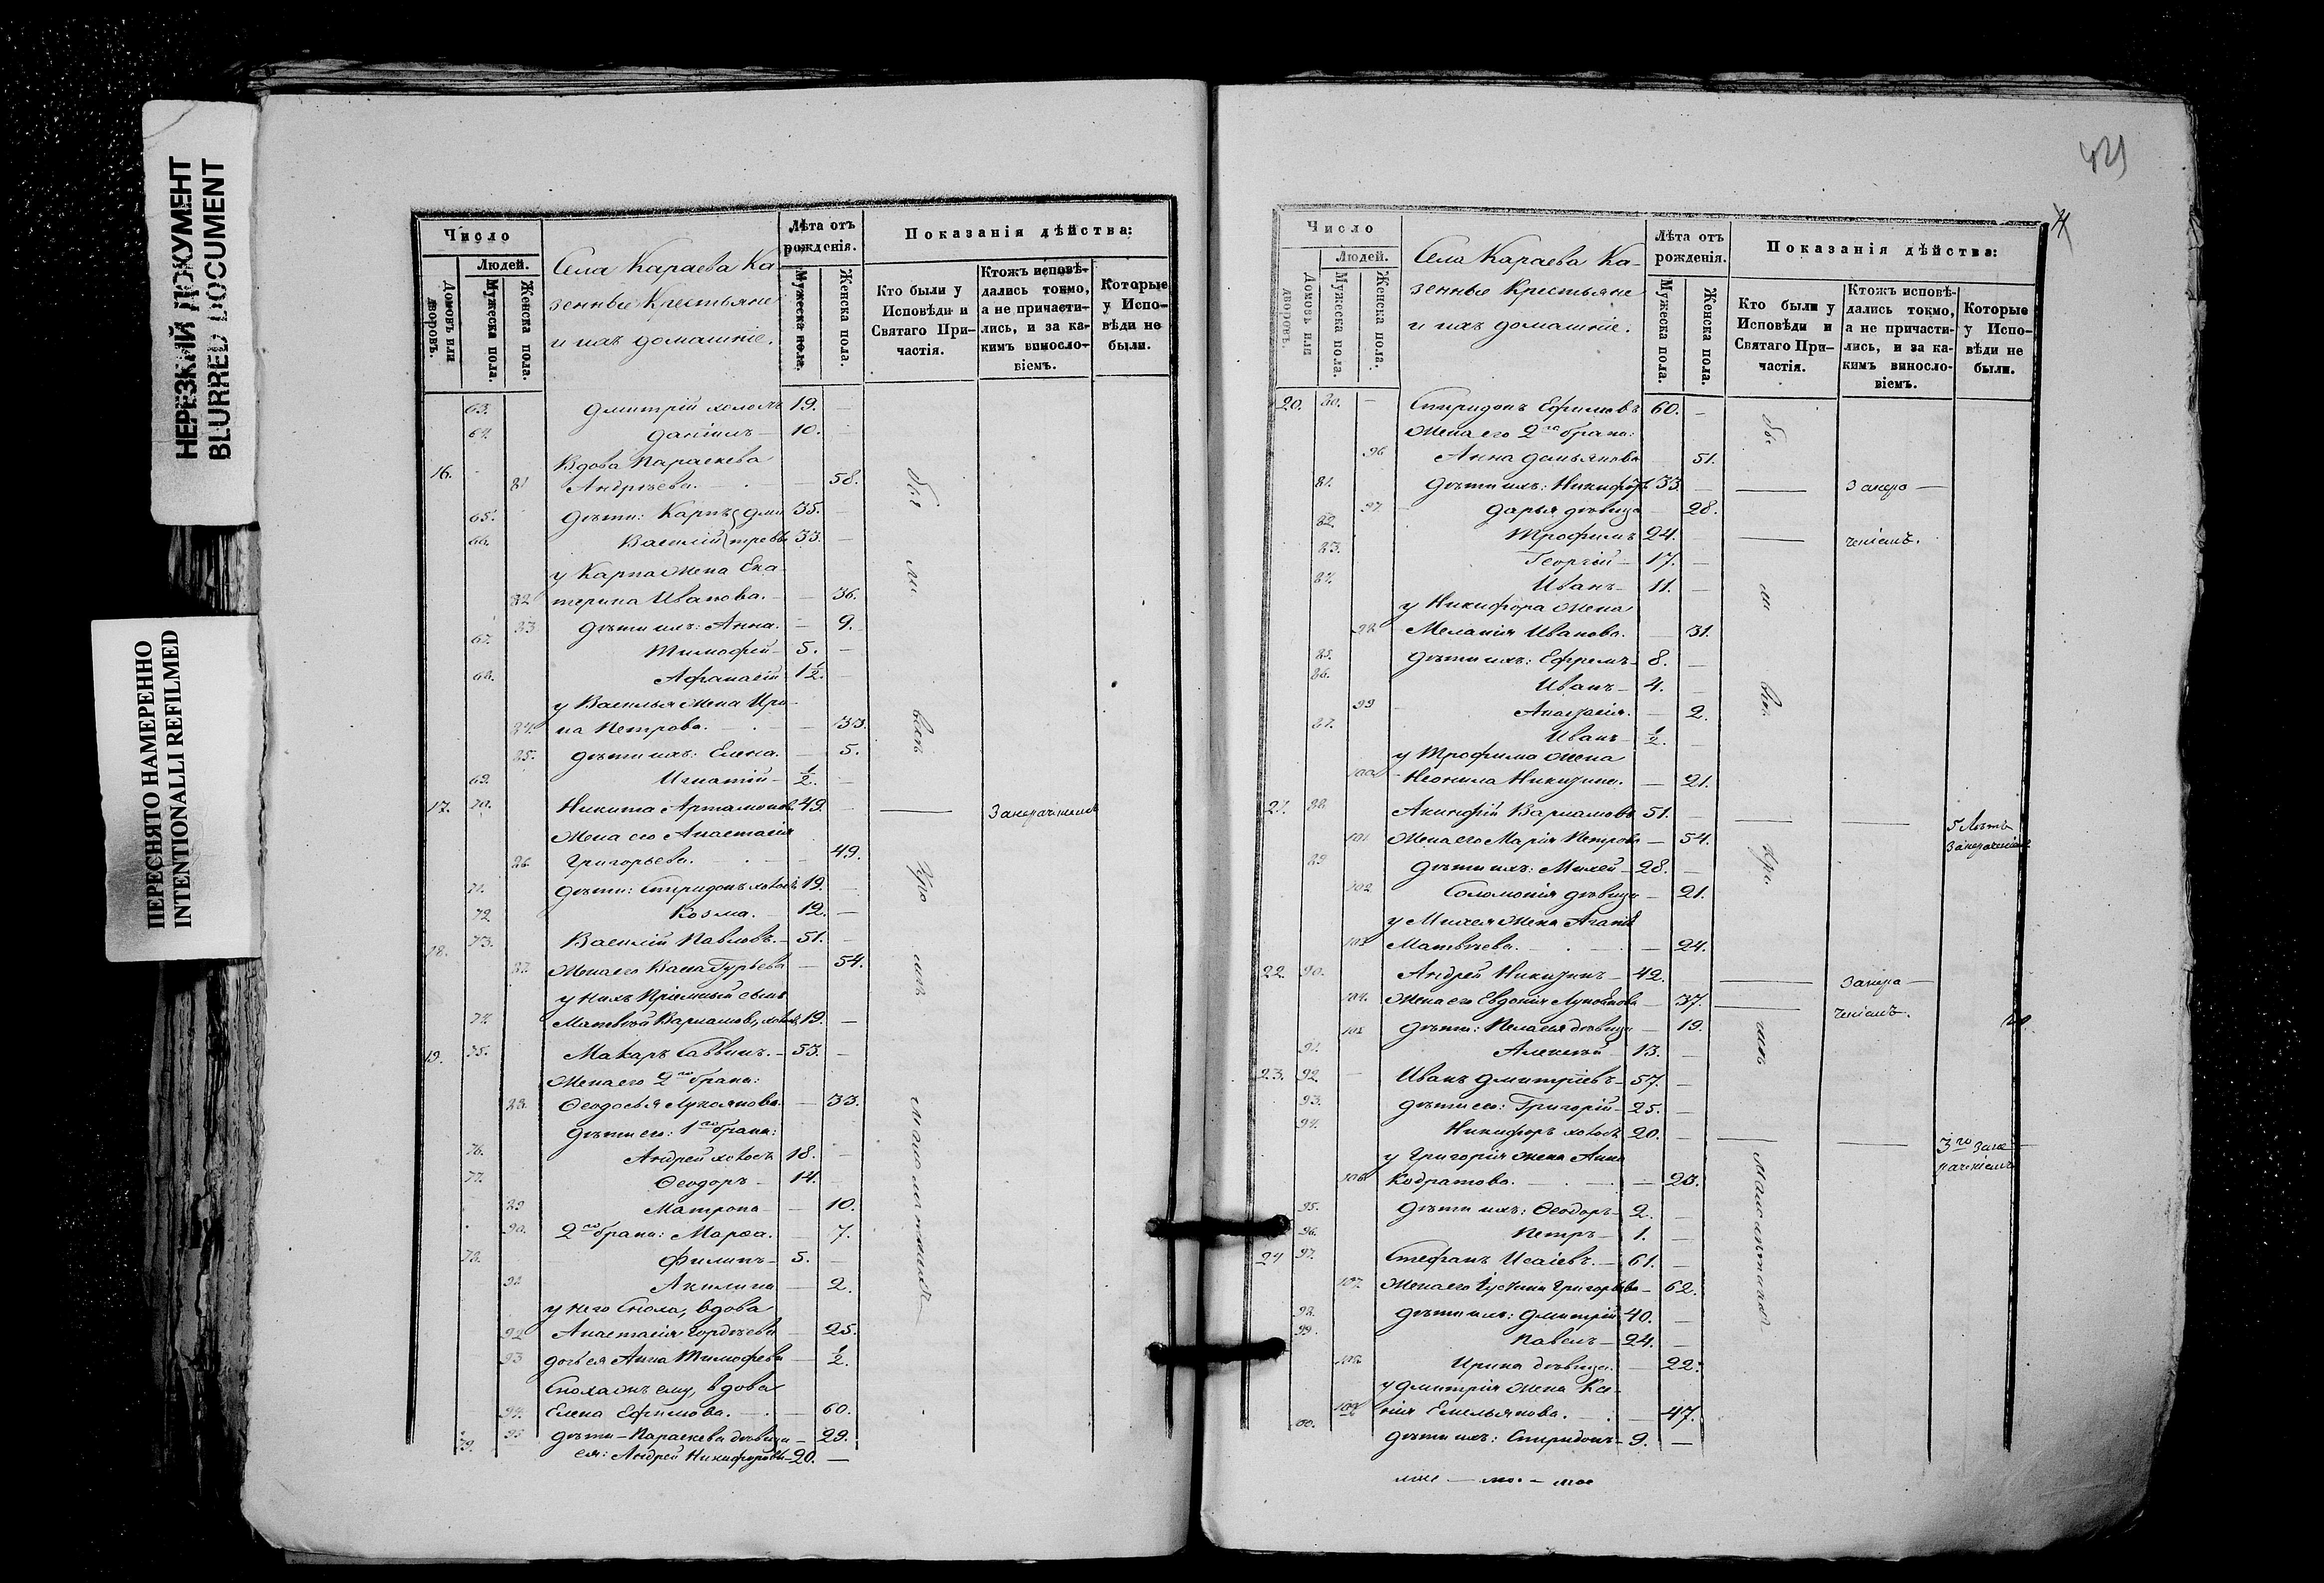 НЕРЕЗКИЙ ДОКУМЕНТ
BLURRED DOCUMENT
ПЕРЕСНЯТО НАМЕРЕННО
INTENTIONALLI REFILMED
Число
Людей.
Домовъ или дворовъ.
Мужеска пола.
Женска пола.
Села Караева Ка-
зенные Крестьяне
и ихъ домашніе.
Лѣта отъ рожденія.
Мужеска пола.
Женска пола.
Показанія дѣйства:
Кто были у Исповѣди и Святаго При-частія.
Ктожъ исповѣ-дались токмо, а не причасти-лись, и за ка-кимъ винословіемъ.
Которые у Испо-вѣди не были.
63. Дмитрій холостъ 19. —
64. Даніилъ — 10.
16. Вдова Параскева
81 Андреева. — 58.
65. Дѣти: Карпъ Дми 35. —
66. Василій тревы 33. —
у Карпа жена Ека-
82 терина Иванова. — 36.
83 Дѣти ихъ: Анна. — 9.
67. Тимофей — 5. —
68. Афанасій 1½. —
у Василья жена Ири-
84. на Петрова. — 33.
85. Дѣти ихъ: Елена. — 5.
69. Игнатій — ½. —
17. 70. Никита Артамоновъ 49. — Запрачтеніемъ
Жена его Анастасія
86. Григорьева. — 49.
71. Дѣти: Спиридонъ холостъ 19. —
72 Козма. — 12. —
18. 73. Василій Павловъ. — 51. —
87. Жена его Васса Гурьева — 54.
у нихъ Пріемный сынъ
74. Матвей Варламовъ, холостъ 19. —
19. 75. Макаръ Саввинъ. — 53. —
Жена его 2го брака:
88. Ѳеодосья Лукоянова. — 33.
Дѣти его: 1го брака:
76. Андрей холостъ 18. —
77. Ѳеодоръ — 14.
89 Матрона — 10.
90. 2го брака: Марѳа. — 7.
78. Филипъ — 5. —
91 Акилина — 2.
у него Сноха, вдова
92 Анастасія Гордѣева — 25.
93 дочь ея Анна Тимофева — ½.
Сноха онъ ему, вдова
94. Елена Ефимова. — 60.
95 Дѣти — Параскева дѣвица — 29.
79. ея: Андрей Никифоровъ — 20. —
бы
ли
всѣ
Кро
мѣ
малолѣтныхъ
429
Число
Людей.
Домовъ или дворовъ.
Мужеска пола.
Женска пола.
Села Караева Ка-
зенные Крестьяне
и ихъ домашніе.
Лѣта отъ рожденія.
Мужеска пола.
Женска пола.
Показанія дѣйства:
Кто были у Исповѣди и Святаго При-частія.
Ктожъ исповѣ-дались токмо, а не причасти-лись, и за ка-кимъ винословіемъ.
Которые у Испо-вѣди не были.
20. 80. — Спиридонъ Ефимовъ 60. —
Жена его 2го брака:
96 Анна Демьянова 51.
81. Дѣти ихъ: Никифоръ 33. —
97 Дарья дѣвица 28.
82. Трофимъ 24. —
83. Георгій — 17. —
84. Иванъ — 11. —
у Никифора жена
98 Меланія Иванова. — 31.
85. Дѣти ихъ: Ефремъ — 8. —
86. Иванъ — 4. —
99 Анастасія. — 2.
87. Иванъ — ½. —
у Трофима жена
100 Неонила Никитина. — 21.
21. 88. Акинфій Варламовъ 51. — 5 Лѣтъ
101 Жена его Марія Петрова — 54.
89 Дѣти ихъ: Михей — 28. —
102 Соломонія дѣвица — 21.
у Михея жена Агапія
103 Матвѣева. — 24.
22. 90. Андрей Никитинъ — 42.
104. Жена его Евдокія Лукоянова — 37.
105 Дѣти: Пелагея дѣвица — 19.
91. Алексѣй — 13. —
23. 92. — Иванъ Дмитріевъ — 57. —
93. Дѣти его: Григорій — 25. —
94. Никифоръ холостъ 20. —
у Григорія жена Анна
106 Кодратова. — 23.
95. Дѣти ихъ: Ѳеодоръ — 2. —
96. Петръ — 1. —
24 97. Стефанъ Исаіевъ. — 61. —
107. Жена его Іустина Григорьева — 62.
98. Дѣти ихъ: Дмитрій 40. —
99. Павелъ — 24. —
108. Ирина дѣвица. — 22.
у Дмитрія жена Ксе-
109 нія Емельянова. — 47.
100. Дѣти ихъ: Спиридонъ — 9. —
бы
ли
всѣ
Кро
мѣ
малолѣтныхъ